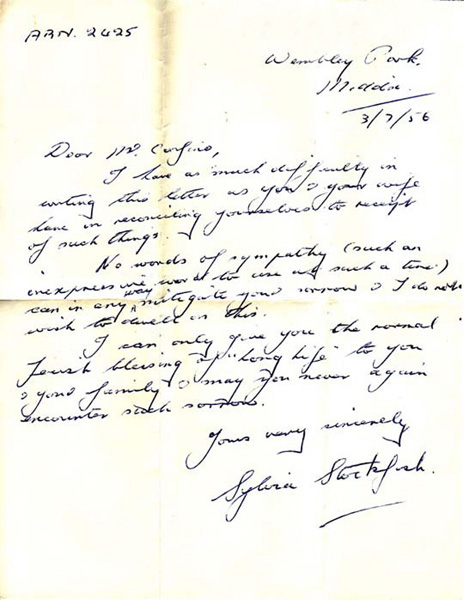 ARN. 2425
Wembley Park.
Middx.
3/7/56
Dear Mr.
I have as much difficulty in
writing this letter as you & your wife
have in reconciling yourselves to receipt
of such things.
No words of sympathy (such an
inexpressive word to use at such a time)
can in any way mitigate your sorrow & I do not
wish to dwell on this.
I can only give you the normal
Jewish blessing of "long life" to you
& your family & may you never again
encounter such sorrow.
Yours very sincerely
Sylvia Stockfish.